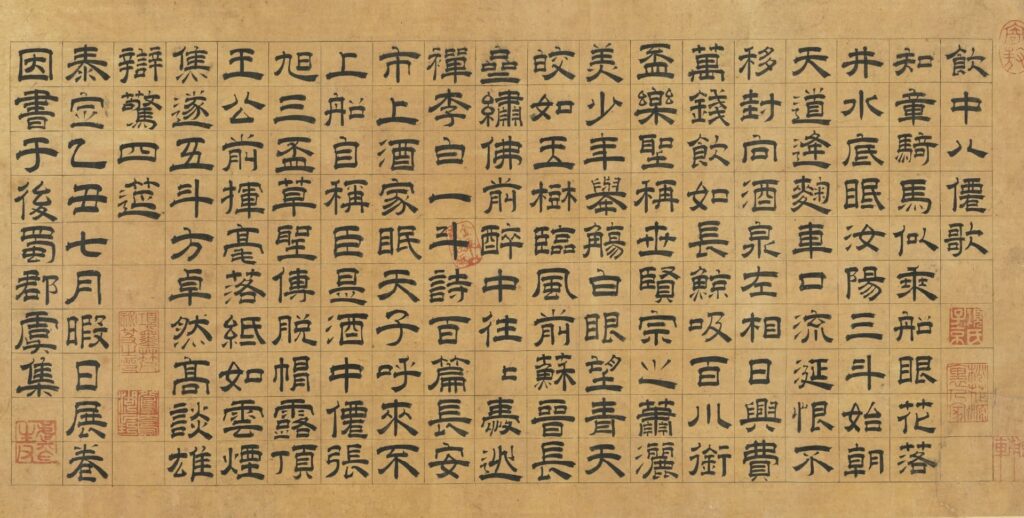 飲中八僊歌
知章騎馬似乘船眼花落
井水底眠汝陽三斗始朝
天道逢麴車口流涎恨不
移封向酒泉左相日興費
萬錢飲如長鯨吸百川銜
盃樂聖稱世賢宗之蕭灑
美少年舉觴白眼望青天
皎如玉樹臨風前蘇晉長
齋繡佛前醉中往〻愛逃
禪李白一斗詩百篇長安
市上酒家眠天子呼來不
上船自稱臣是酒中僊張
旭三盃草聖傳脫帽露頂
王公前揮毫落紙如雲煙
焦遂五斗方卓然高談雄
辯驚四筵
泰定乙丑七月暇日展卷
因書于後蜀郡虞集